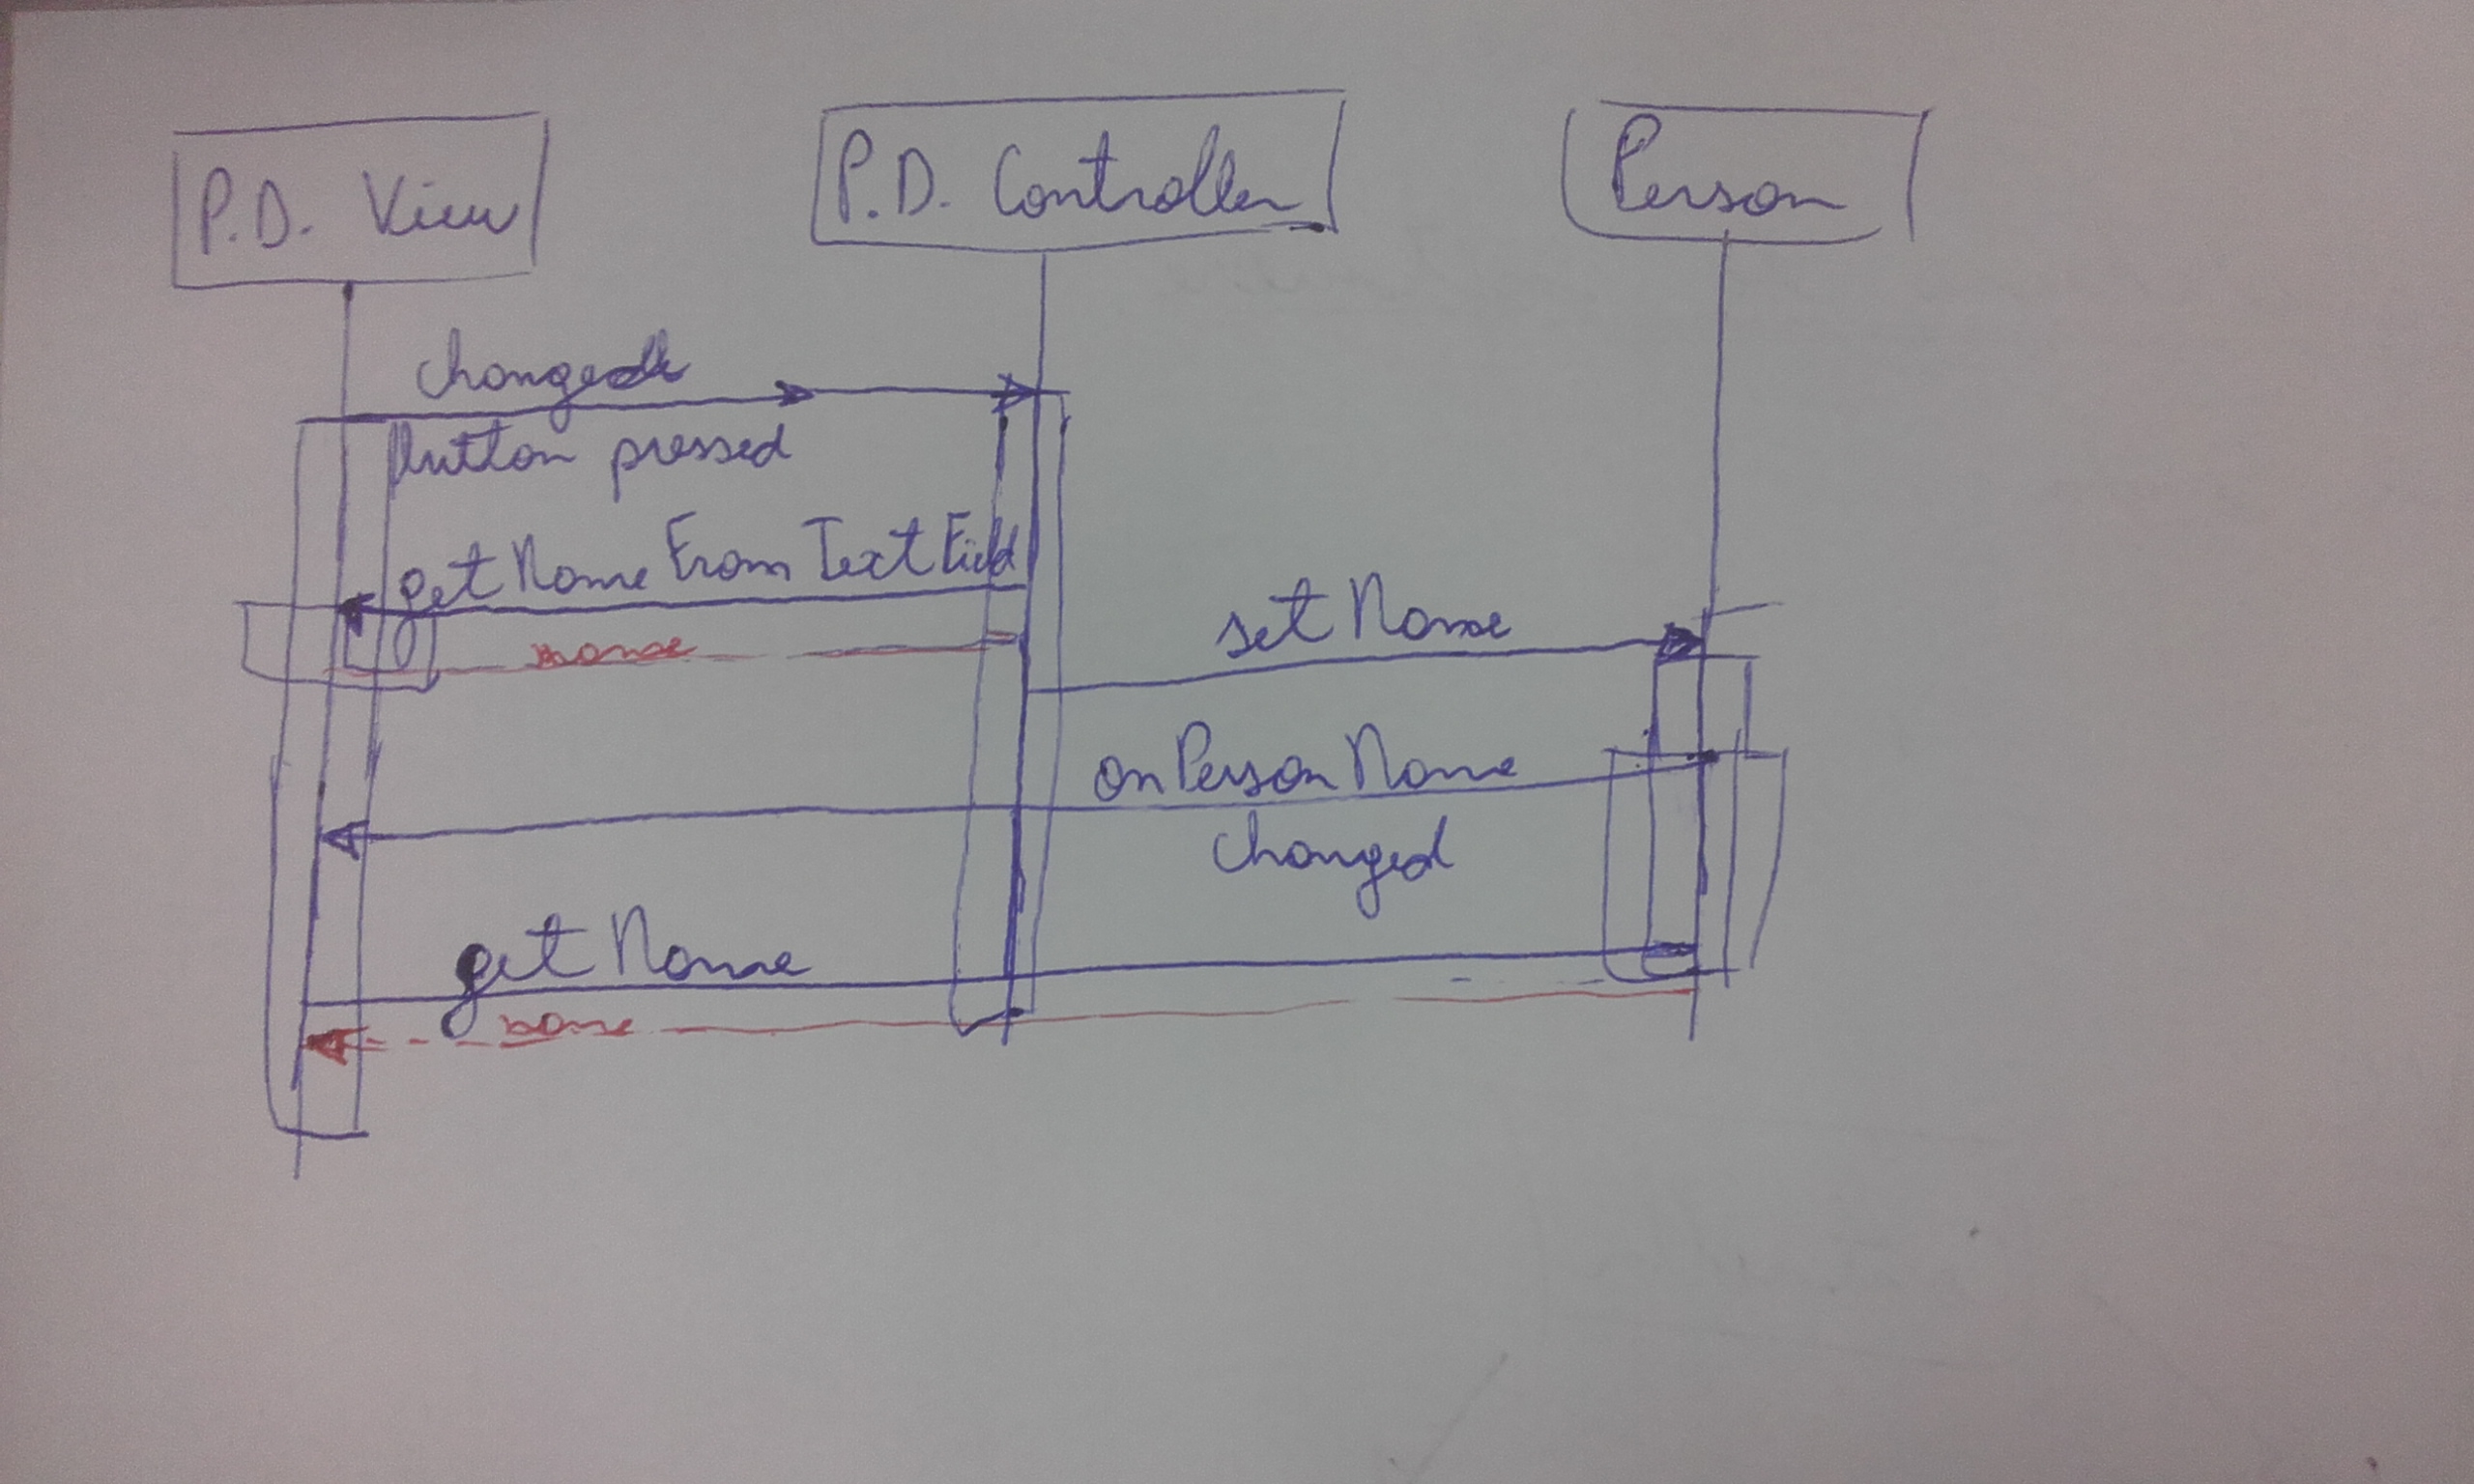 P.D. View
P.D. Controller
Person
changed
button pressed
get Name From Text Field
name
set Name
on Person Name
changed
get Name
name